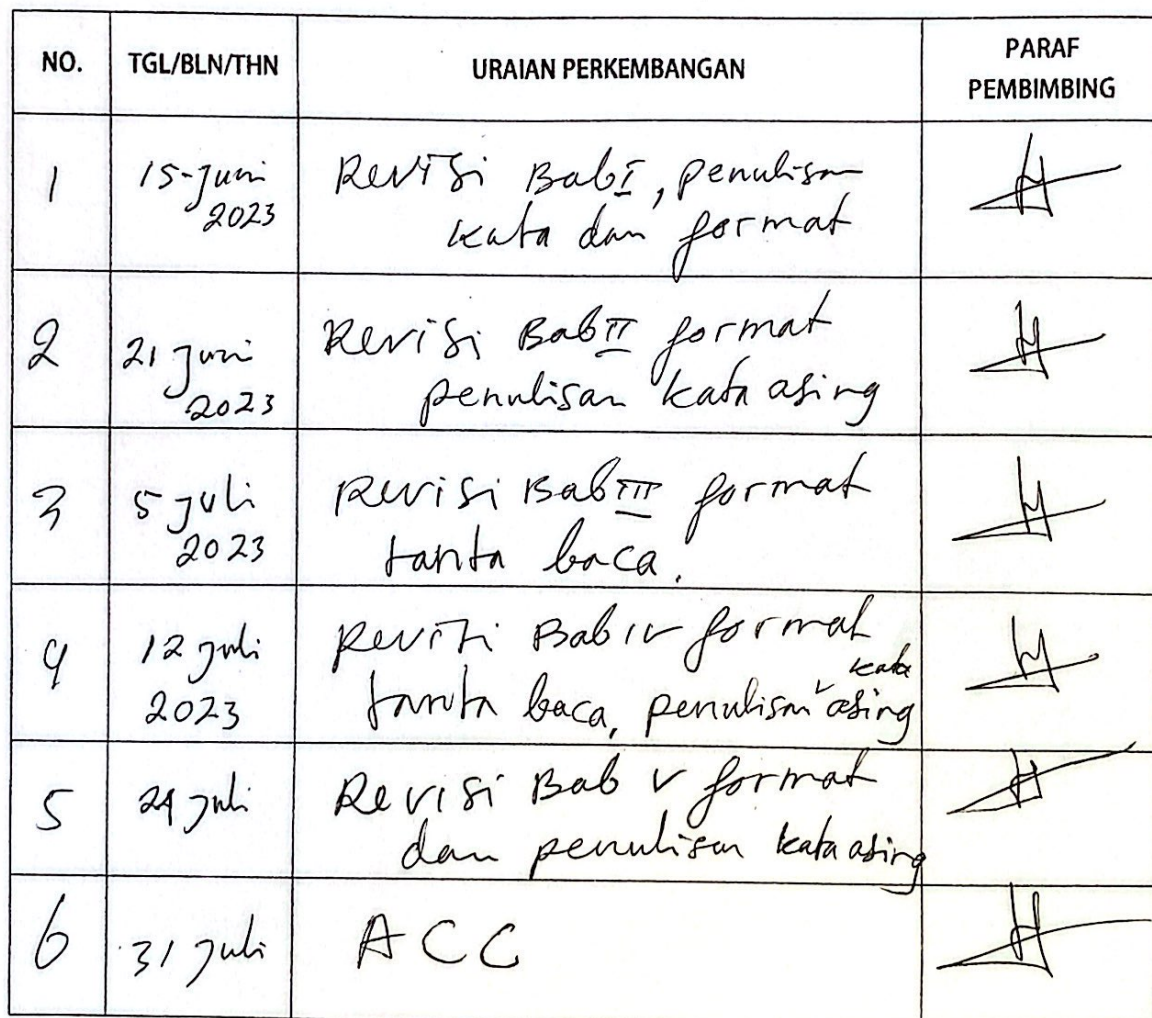 NO. TGL/BLN/THN URAIAN PERKEMBANGAN PARAF
PEMBIMBING
1 15-Juni Revisi Bab I, penulisan
2023 kata dan format
2 21 Juni Revisi Bab II format
2023 penulisan kata asing
3 5 Juli Revisi Bab III format
2023 tanta baca.
4 12 Juli Revisi Bab IV format
kata
2023 tanta baca, penulisan asing
5 24 Juli Revisi Bab V format
dan penulisan kata asing
6 31 Juli ACC